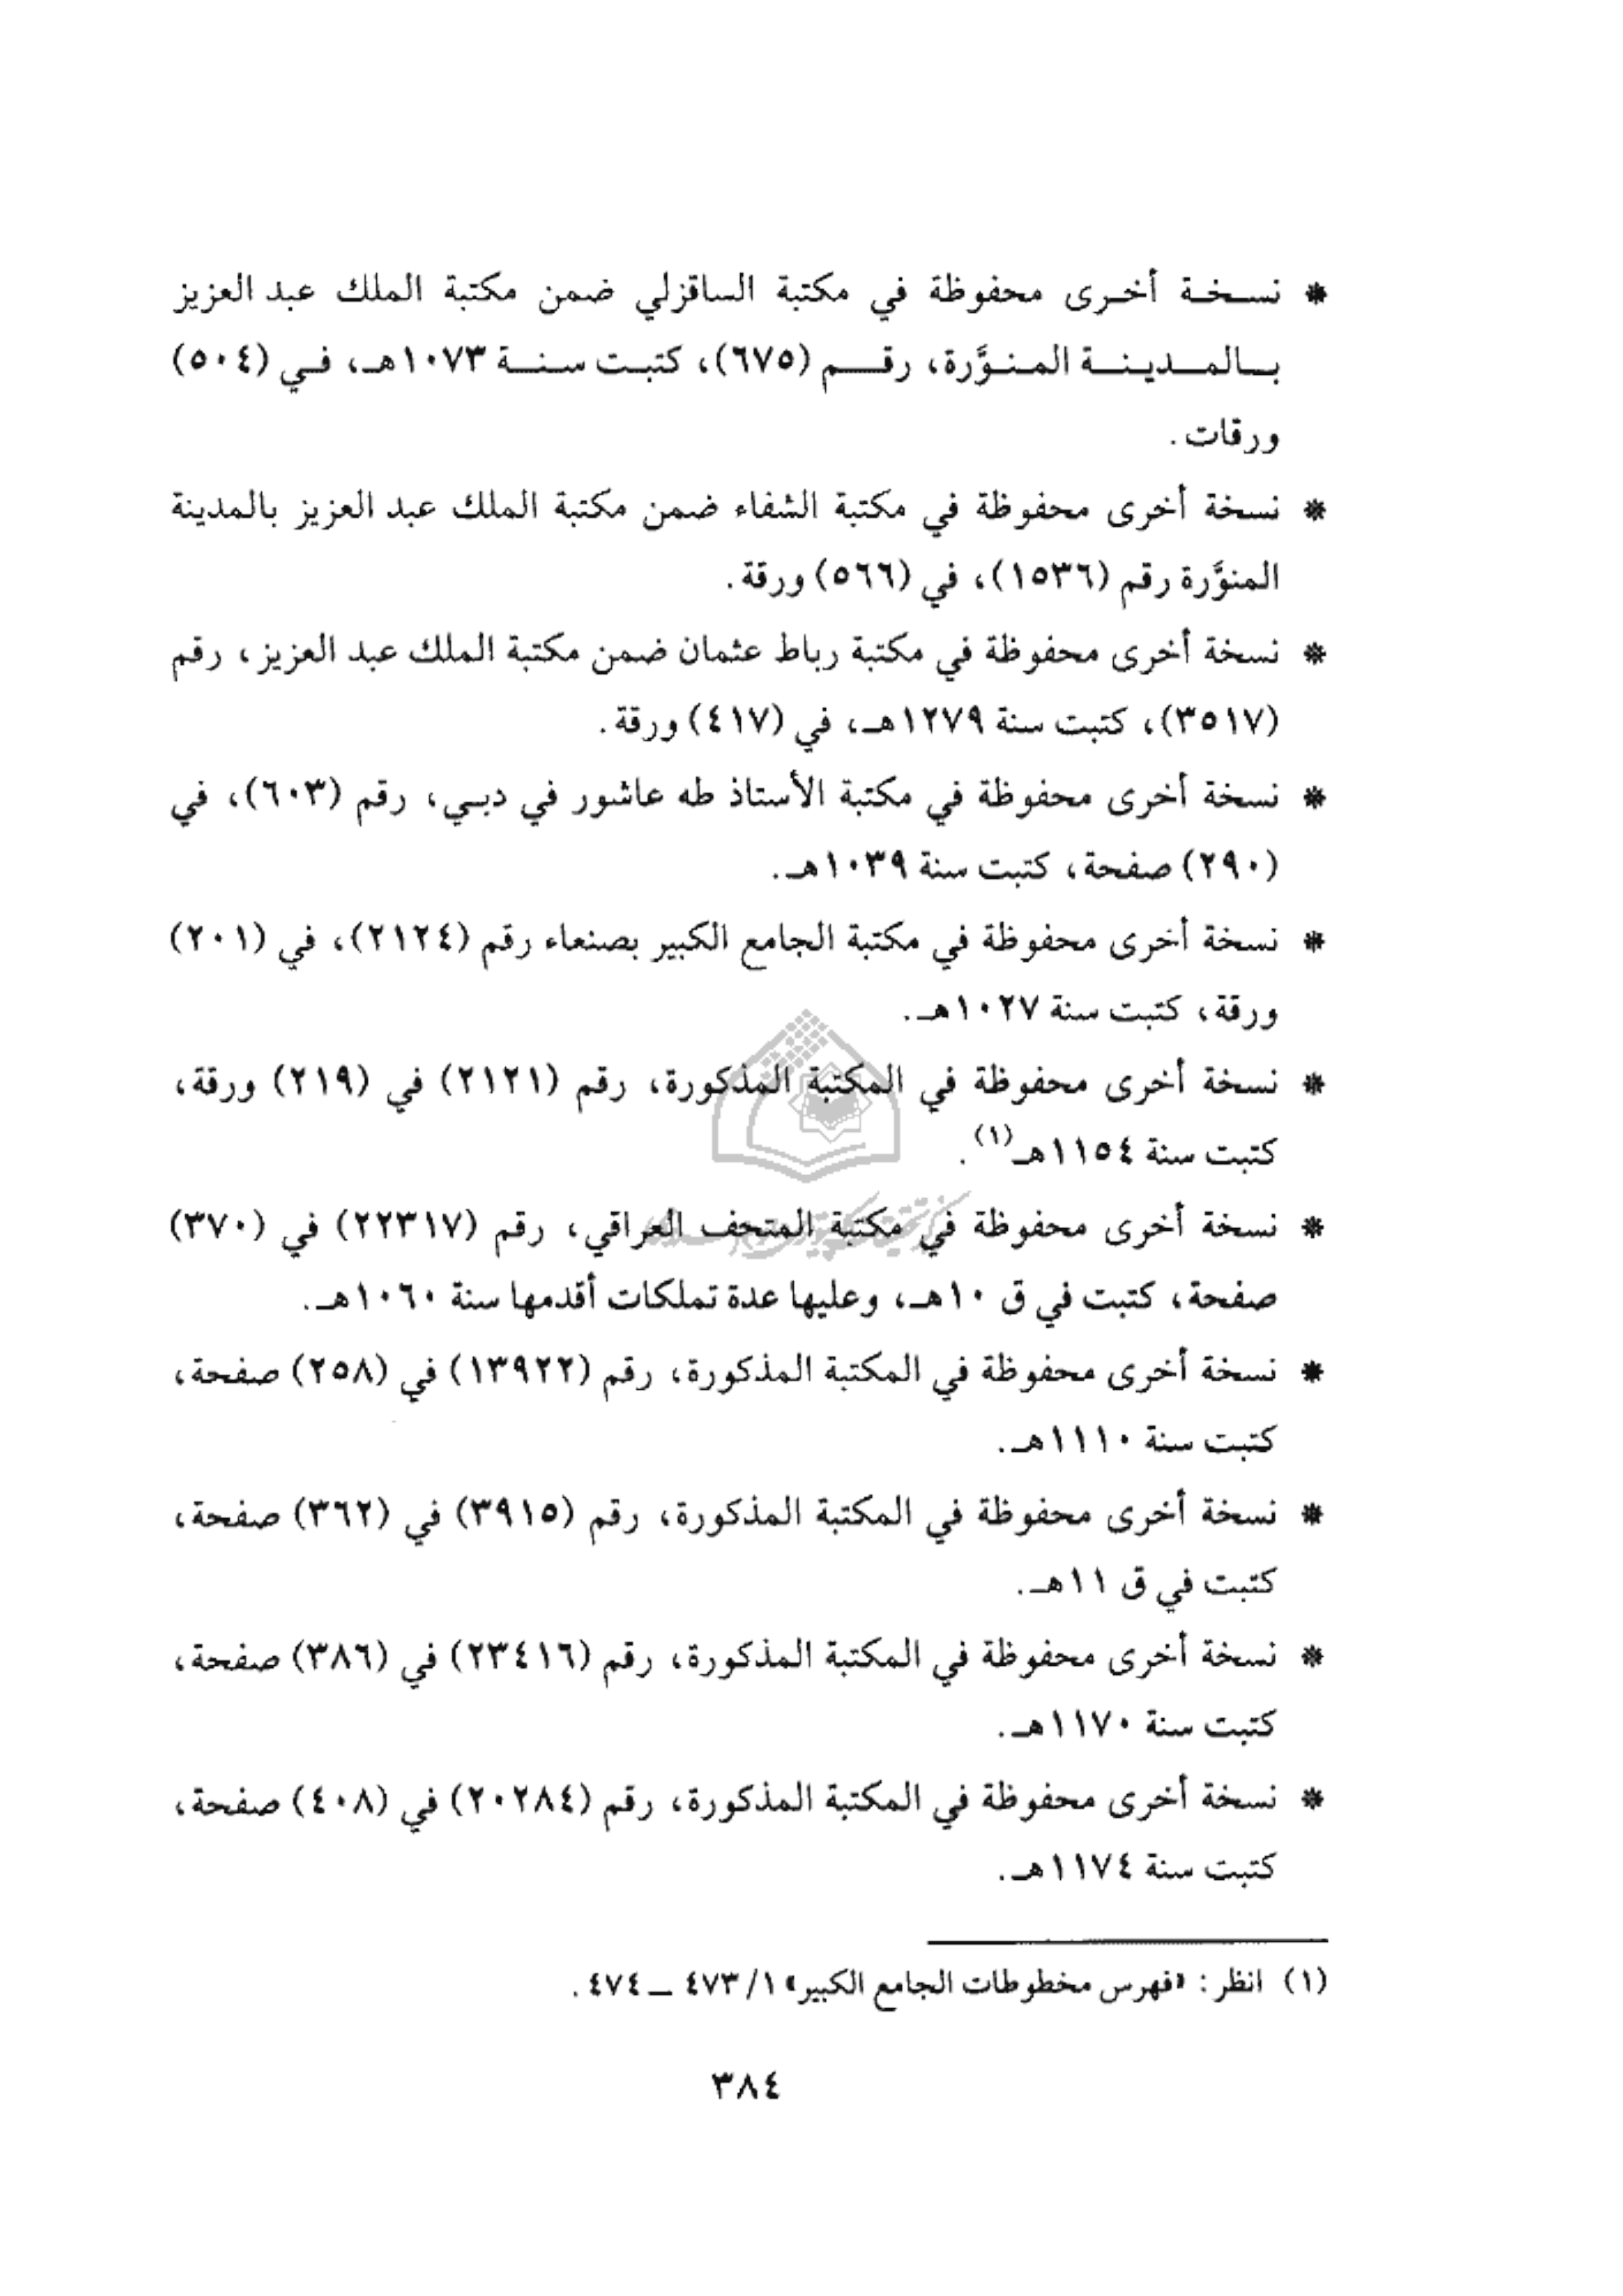 * نسخة أخرى محفوظة في مكتبة الساقزلي ضمن مكتبة الملك عبد العزيز
بالمدينة المنوَّرة، رقم (٦٧٥)، كتبت سنة ١٠٧٣هـ، في (٥٠٤)
ورقات.
* نسخة أخرى محفوظة في مكتبة الشفاء ضمن مكتبة الملك عبد العزيز بالمدينة
المنوَّرة رقم (١٥٣٦)، في (٥٦٦) ورقة.
* نسخة أخرى محفوظة في مكتبة رباط عثمان ضمن مكتبة الملك عبد العزيز، رقم
(٣٥١٧)، كتبت سنة ١٢٧٩هـ، في (٤١٧) ورقة.
* نسخة أخرى محفوظة في مكتبة الأستاذ طه عاشور في دبي، رقم (٦٠٣)، في
(٢٩٠) صفحة، كتبت سنة ١٠٣٩هـ.
* نسخة أخرى محفوظة في مكتبة الجامع الكبير بصنعاء رقم (٢١٢٤)، في (٢٠١)
ورقة، كتبت سنة ١٠٢٧هـ.
* نسخة أخرى محفوظة في المكتبة المذكورة، رقم (٢١٢١) في (٢١٩) ورقة،
كتبت سنة ١١٥٤هـ(١).
* نسخة أخرى محفوظة في مكتبة المتحف العراقي، رقم (٢٢٣١٧) في (٣٧٠)
صفحة، كتبت في ق ١٠هـ، وعليها عدة تملكات أقدمها سنة ١٠٦٠هـ.
* نسخة أخرى محفوظة في المكتبة المذكورة، رقم (١٣٩٢٢) في (٢٥٨) صفحة،
كتبت سنة ١١١٠هـ.
* نسخة أخرى محفوظة في المكتبة المذكورة، رقم (٣٩١٥) في (٣٦٢) صفحة،
كتبت في ق ١١هـ.
* نسخة أخرى محفوظة في المكتبة المذكورة، رقم (٢٣٤١٦) في (٣٨٦) صفحة،
كتبت سنة ١١٧٠هـ.
* نسخة أخرى محفوظة في المكتبة المذكورة، رقم (٢٠٢٨٤) في (٤٠٨) صفحة،
كتبت سنة ١١٧٤هـ.
(١) انظر: «فهرس مخطوطات الجامع الكبير» ١/ ٤٧٣ ــ ٤٧٤.
٣٨٤